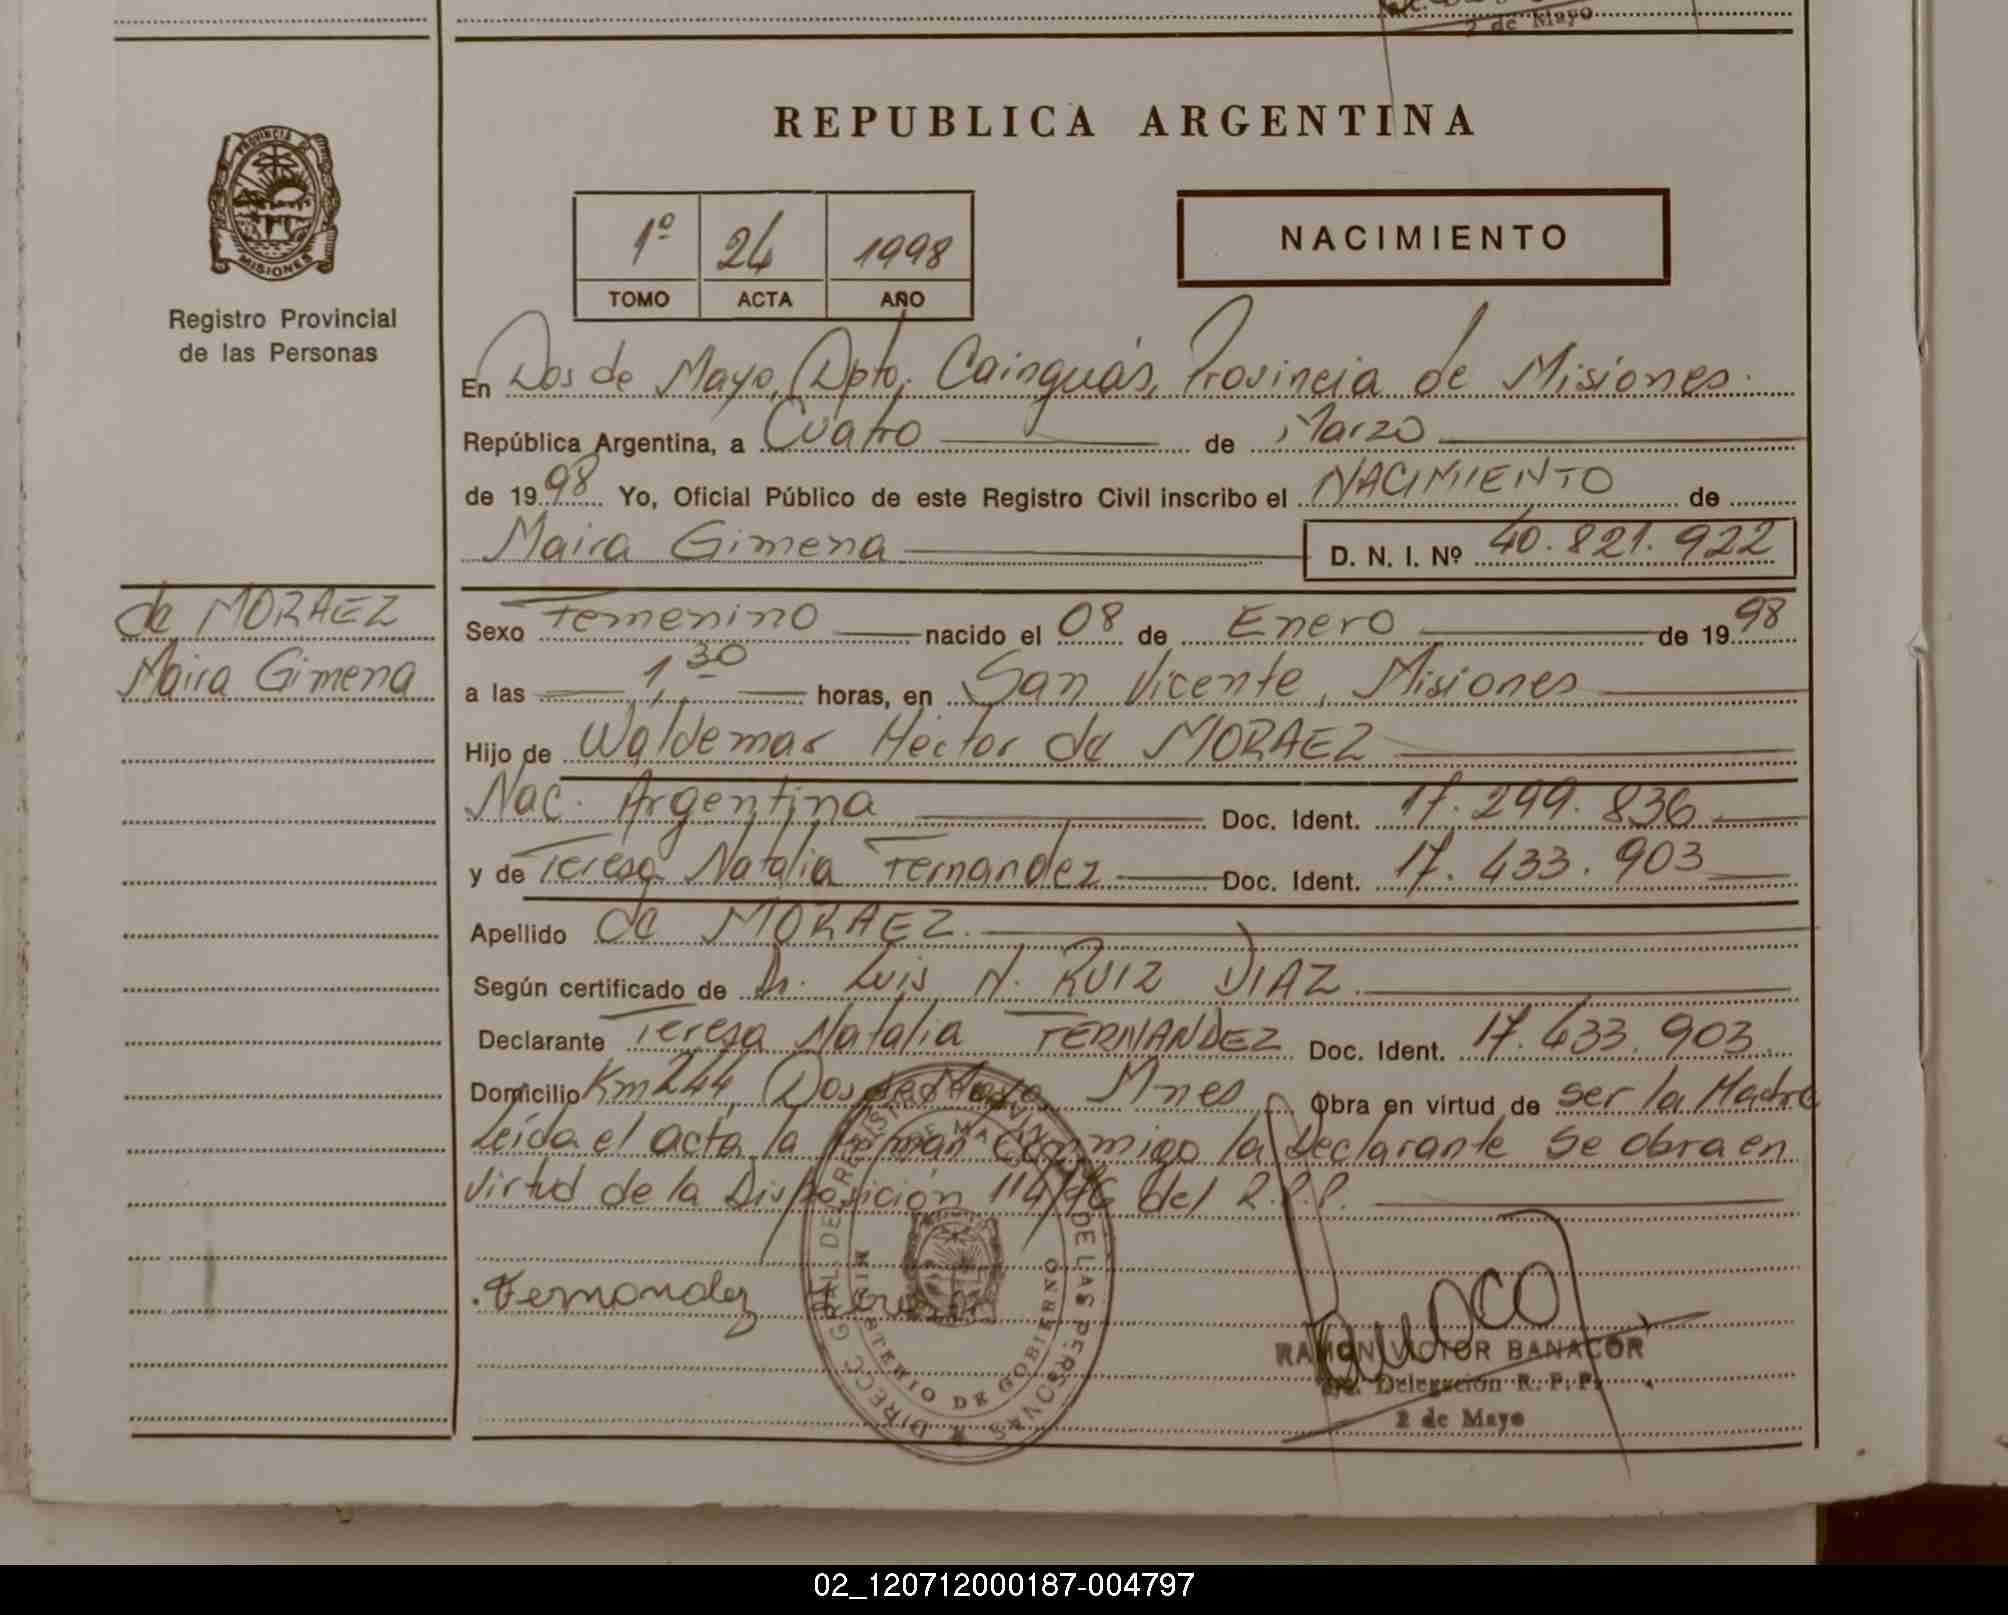 2 de Mayo
REPUBLICA ARGENTINA
PROVINCIA DE
MISIONES
Registro Provincial
de las Personas
1º 24 1998
TOMO ACTA AÑO
NACIMIENTO
En Dos de Mayo, Dpto. Cainguás, Provincia de Misiones.
República Argentina, a Cuatro de Marzo
de 1998 Yo, Oficial Público de este Registro Civil inscribo el NACIMIENTO de
Maira Gimena D. N. I. Nº 40.821.922
de MORAEZ
Maira Gimena
Sexo Femenino nacido el 08 de Enero de 1998
a las 1,30 horas, en San Vicente, Misiones
Hijo de Waldemar Hector de MORAEZ
Nac. Argentina Doc. Ident. 17.299.836
y de Teresa Natalia Fernandez Doc. Ident. 17.433.903
Apellido de MORAEZ.
Según certificado de Dr. Luis N. RUIZ DIAZ.
Declarante Teresa Natalia FERNANDEZ Doc. Ident. 17.433.903
Domicilio Km 244, Dos de Mayo, Mnes Obra en virtud de ser la Madre
Leída el acta, la firman conmigo la Declarante se obra en
virtud de la Disposición 114/96 del R.P.P.
Fernandez Teresa
DIRECC. GRAL DE REGISTRO DE LAS PERSONAS
MINISTERIO DE GOBIERNO
RAMON VICTOR BANACOR
Delegación R. P. P.
2 de Mayo
02_120712000187-004797